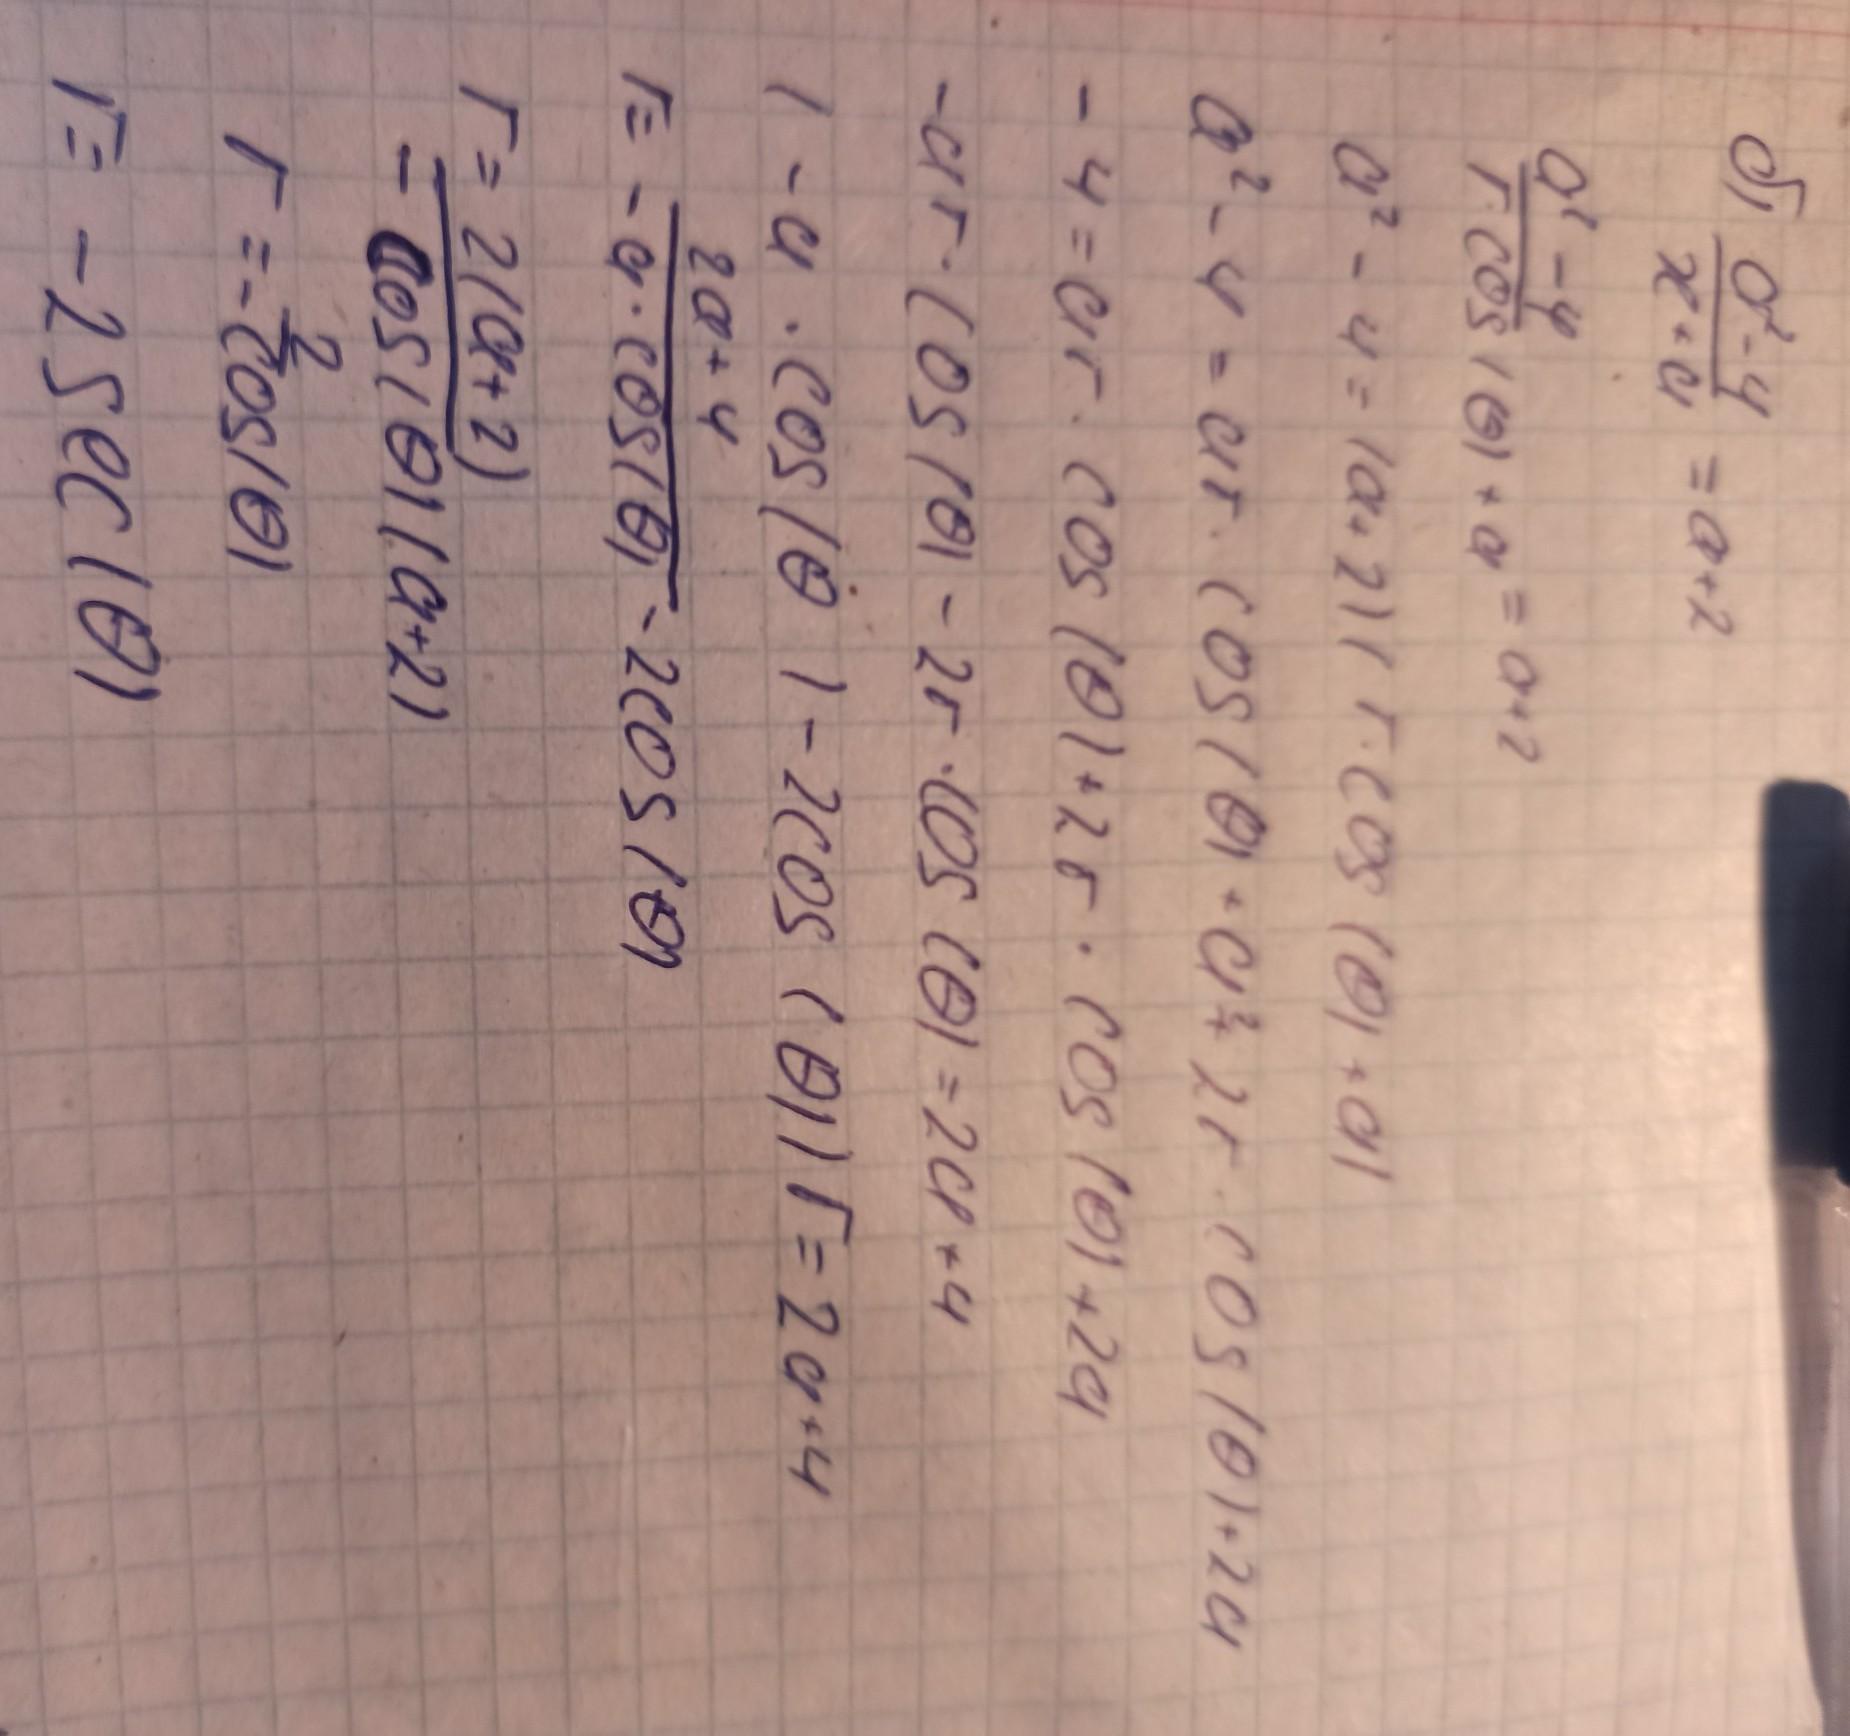 б) a²-4/x+a = a+2
a²-4/r·cos(θ)+a = a+2
a²-4=(a+2)(r·cos(θ)+a)
a²-4=ar·cos(θ)+a²+2r·cos(θ)+2a
-4=ar·cos(θ)+2r·cos(θ)+2a
-ar·cos(θ)-2r·cos(θ)=2a+4
(-a·cos(θ)-2cos(θ))r=2a+4
r= 2a+4/-a·cos(θ)-2cos(θ)
r= 2(a+2)/-cos(θ)(a+2)
r=-2/cos(θ)
r=-2sec(θ)